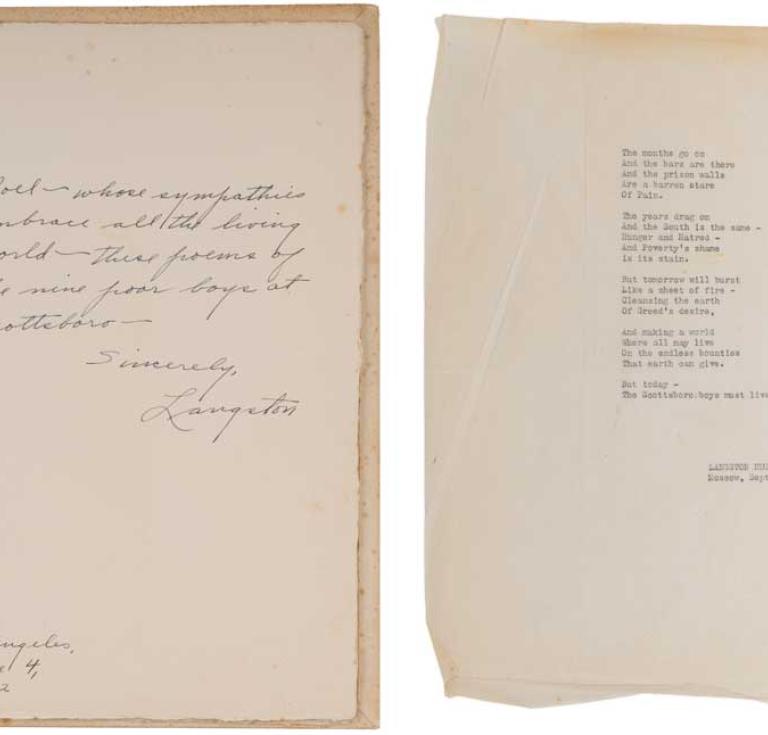 oel — whose sympathies
mbrace all the living
orld — these poems of
e nine poor boys at
cottsboro —
Sincerely,
Langston
ngeles,
e 4,
2
The months go on
And the bars are there
And the prison walls
Are a barren stare
Of Pain.
The years drag on
And the South is the same -
Hunger and Hatred -
And Poverty's shame
is its stain.
But tomorrow will burst
Like a sheet of fire -
Cleansing the earth
Of Greed's desire,
And making a world
Where all may live
On the endless bounties
That earth can give.
But today -
The Scottsboro boys must live
LANGSTON HU
Moscow, Sept